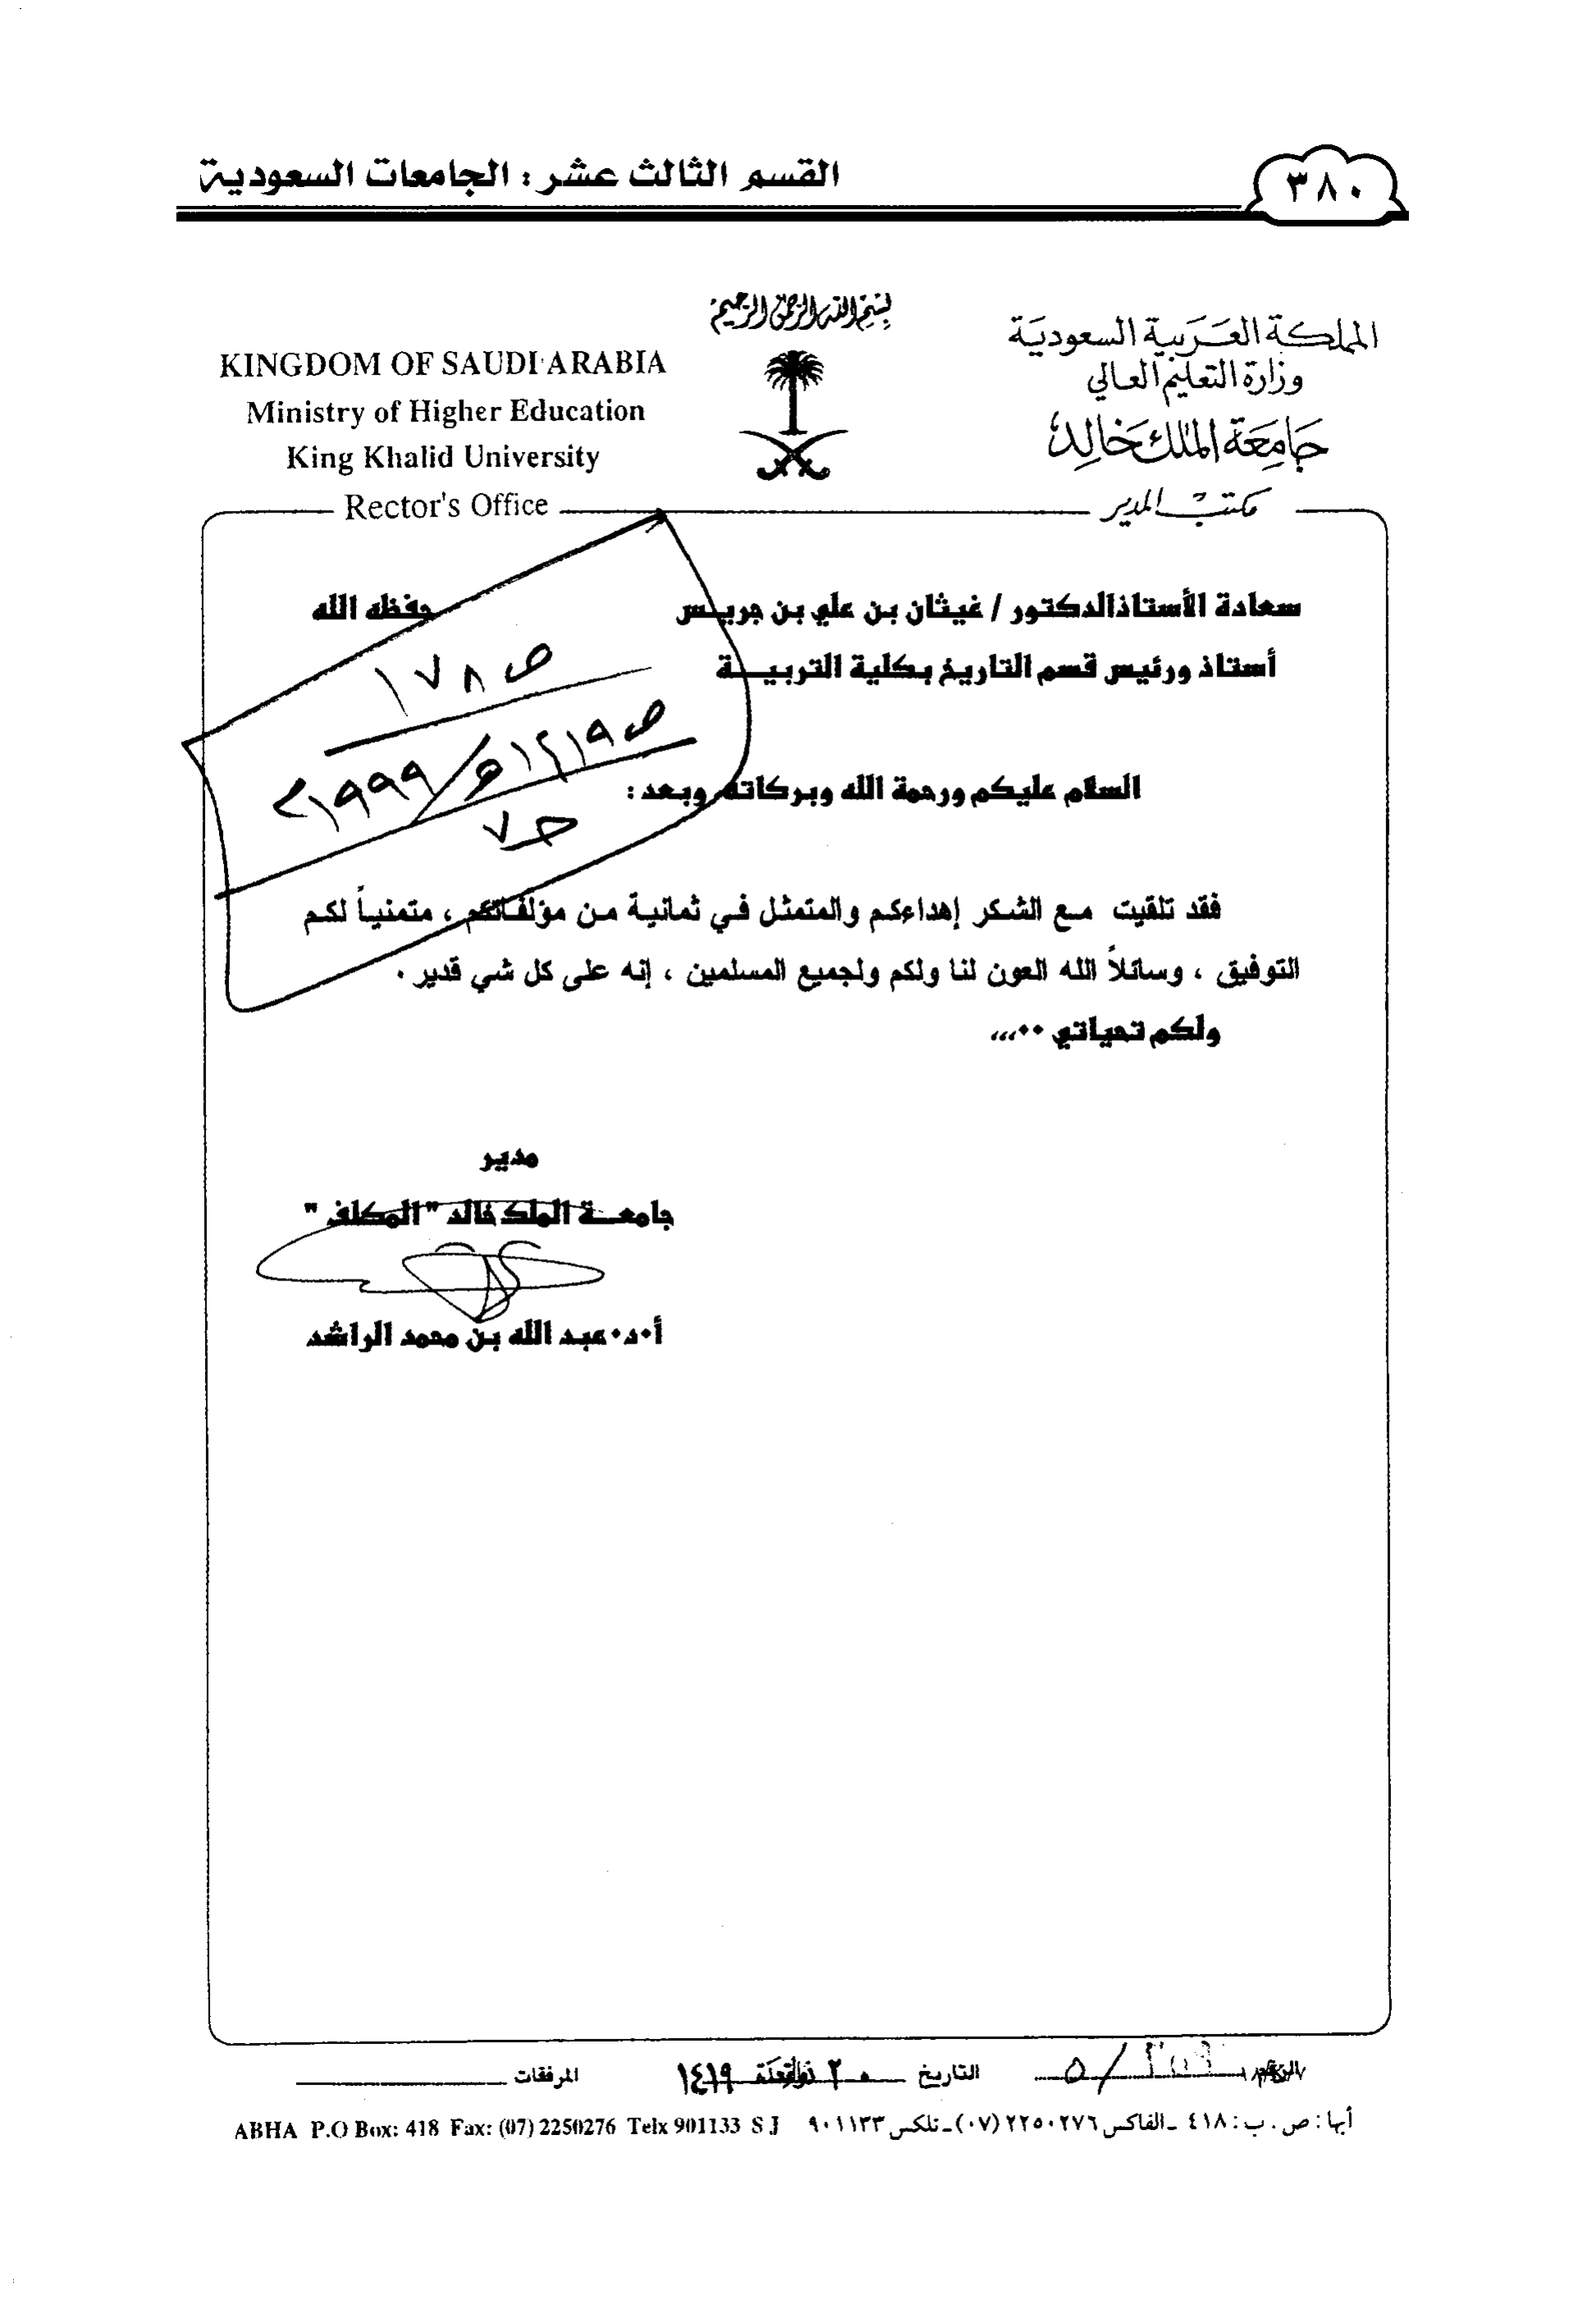 القسم الثالث عشر : الجامعات السعودية
٣٨٠
بسم الله الرحمن الرحيم
المملكة العربية السعودية
وزارة التعليم العالي
جامعة الملك خالد
مكتب المدير
KINGDOM OF SAUDI ARABIA
Ministry of Higher Education
King Khalid University
Rector's Office
سعادة الأستاذالدكتور / غيثان بن علي بن جريس حفظه الله
أستاذ ورئيس قسم التاريخ بكلية التربيـــة
ص ١٧٨
ص ١٤١٩هـ/١٩٩٩م
حـ٧
السلام عليكم ورحمة الله وبركاته وبعد :
فقد تلقيت مع الشكر إهداءكم والمتمثل في ثمانية من مؤلفاتكم ، متمنياً لكم
التوفيق ، وسائلاً الله العون لنا ولكم ولجميع المسلمين ، إنه على كل شي قدير ٠
ولكم تحياتي ٠٠،،،
مدير
جامعـــة الملك خالد "المكلف"
أ٠د٠عبد الله بن محمد الراشد
الرقم /٥ التاريخ ٢٠ ١٤١٩ المرفقات
أبها : ص . ب : ٤١٨ ـ الفاكس ٢٢٥٠٢٧٦ (٠٧) ـ تلكس ٩٠١١٣٣ ABHA P.O Box: 418 Fax: (07) 2250276 Telx 901133 S J